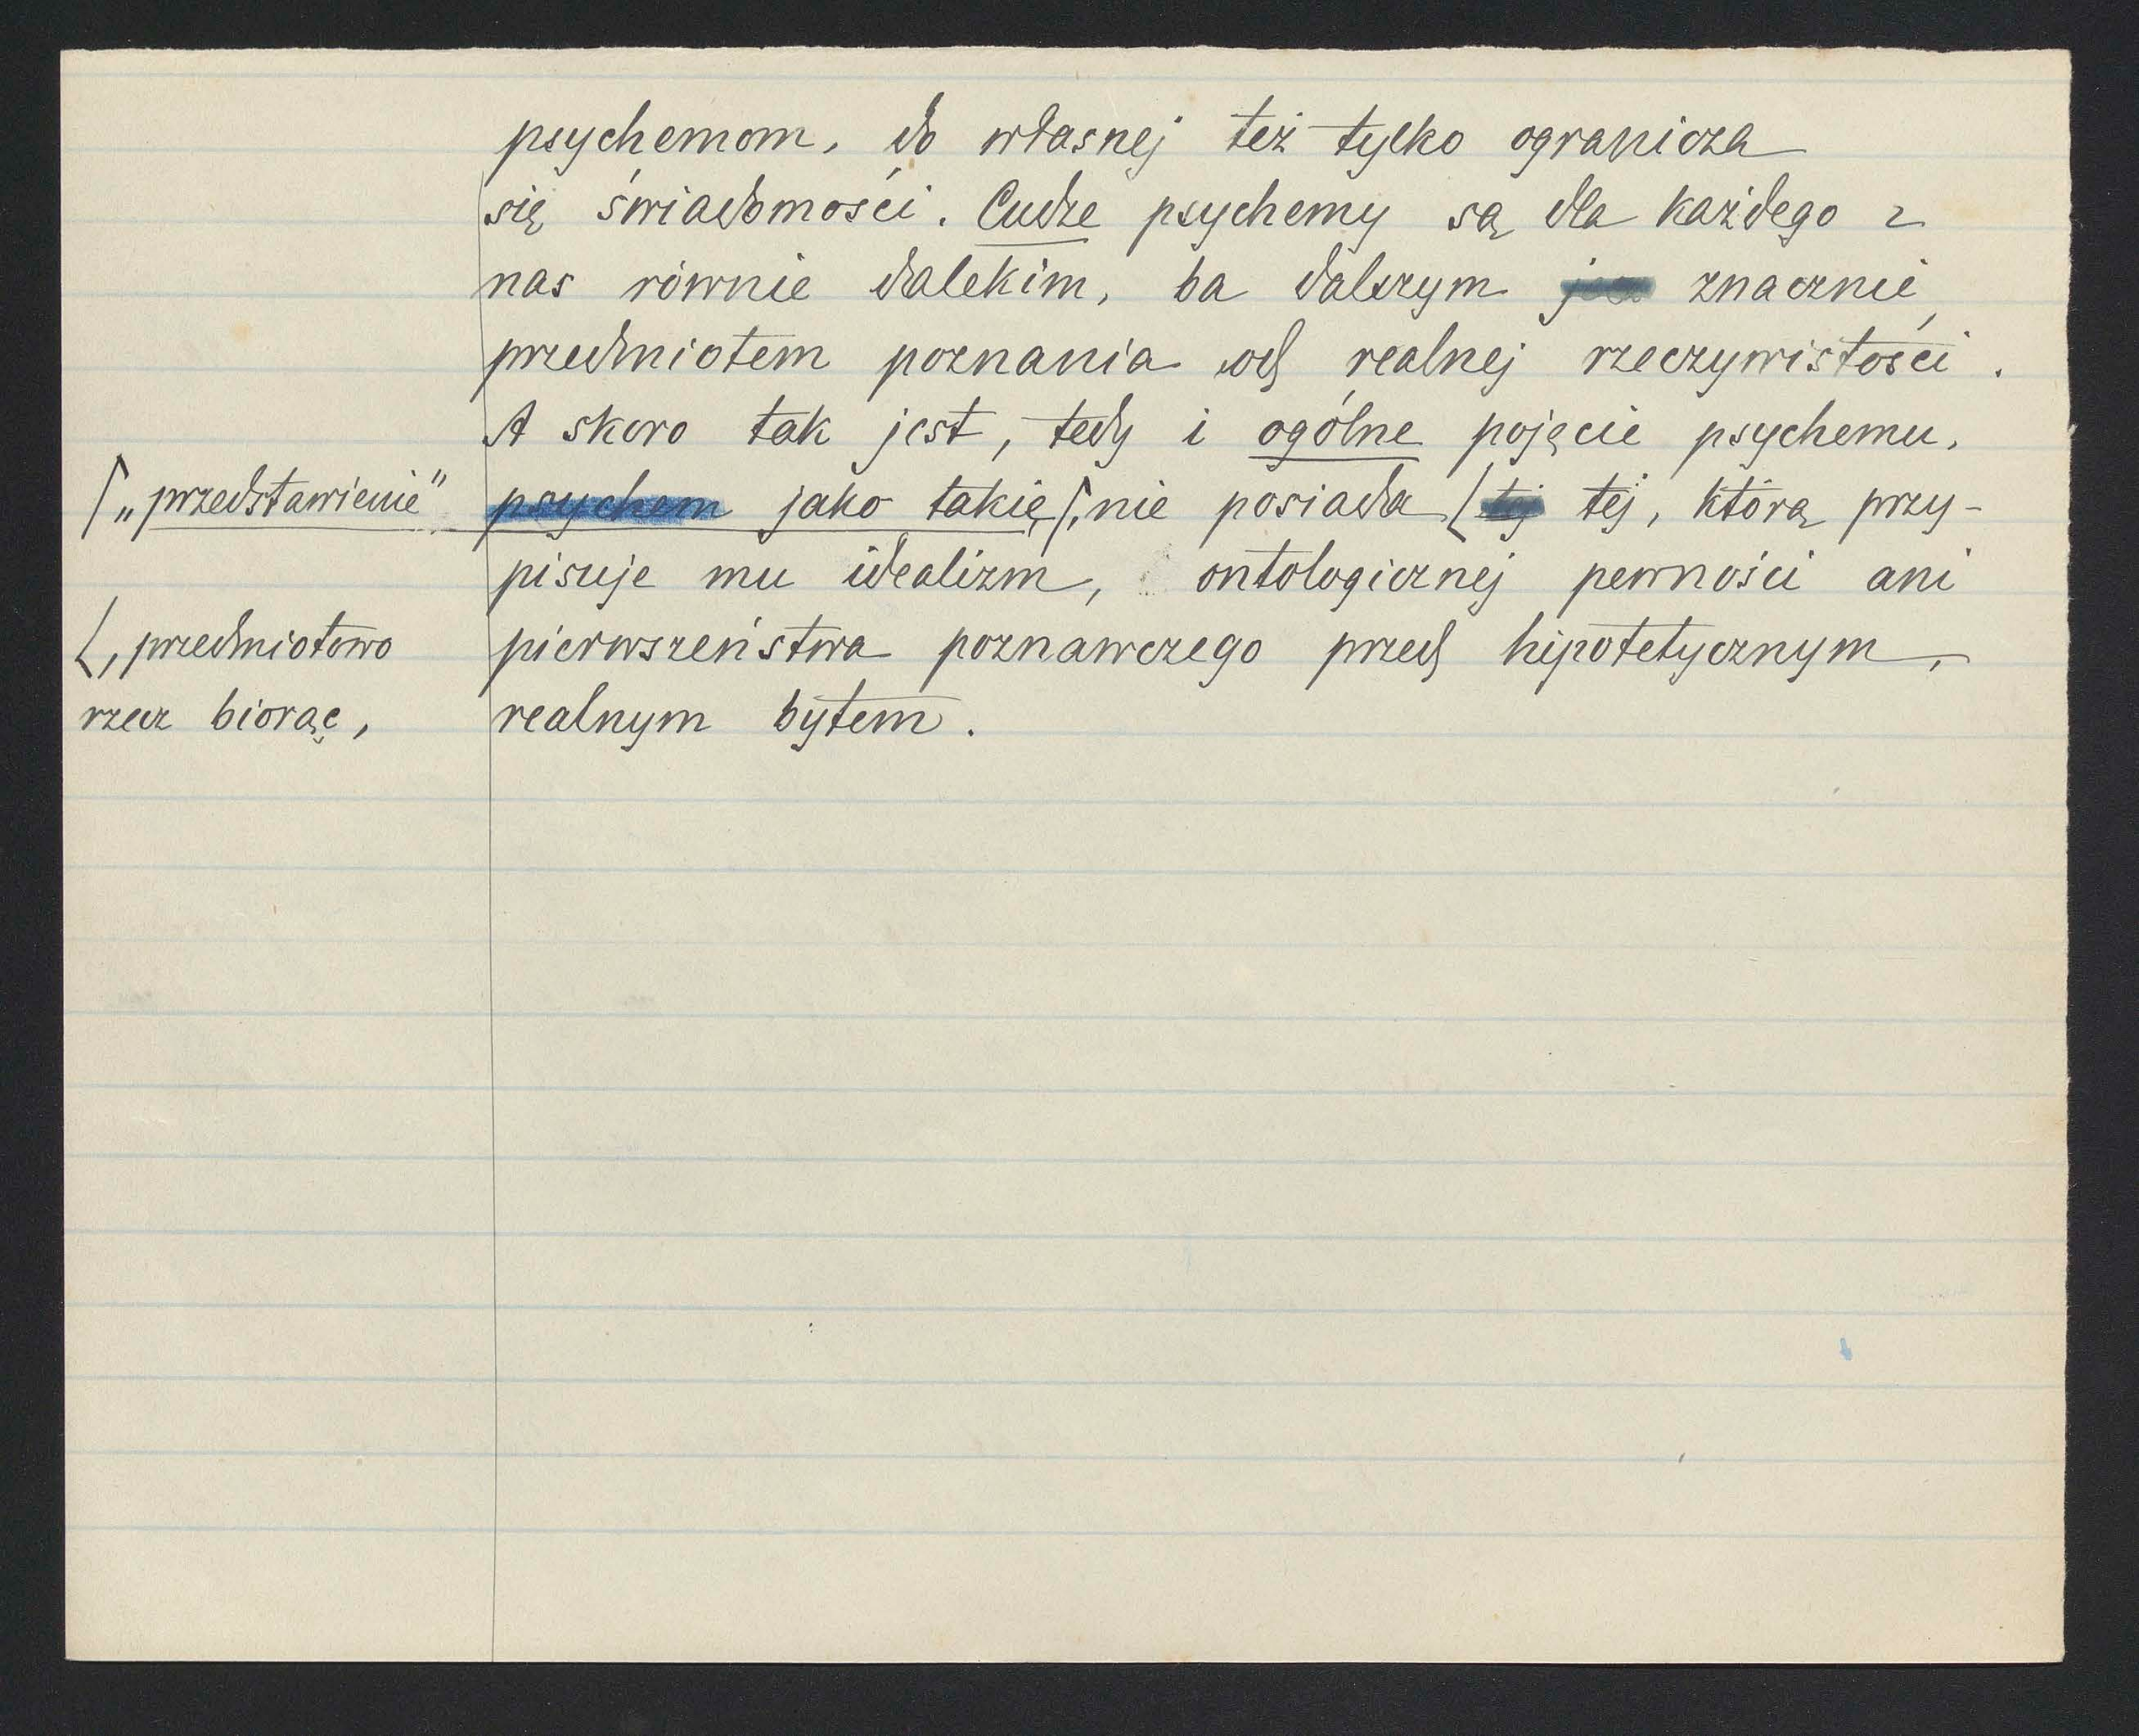 psychemom, do własnej też tylko ogranicza
się świadomości. Cudze psychemy są dla każdego z
nas równie dalekim, ba dalszym znacznie
przedmiotem poznania od realnej rzeczywistości.
A skoro tak jest, tedy i ogólne pojęcie psychemu,
⌈„przedstawienie” psychem jako takie⌈, nie posiada ⌊ tej tej, którą przy-
pisuje mu idealizm, ontologicznej pewności ani
⌊, przedmiotowo
pierwszeństwa poznawczego przed hipotetycznym,
rzecz biorąc,
realnym bytem.